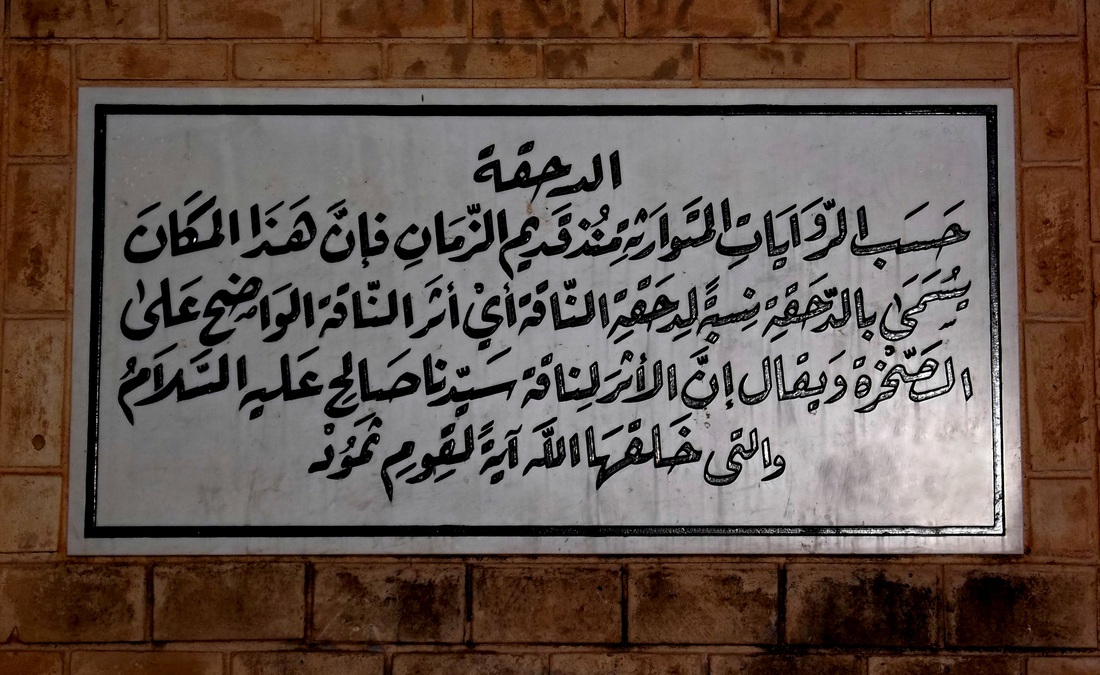 الدحقة
حَسَب الرِّوَايَاتِ المتَوارَثةِ مُنْذ قَديمِ الزَّمَانِ فإنَّ هَذَا المكَانَ
يُسَمَىٰ بالدَّحَقةِ نِسبةً لِدحَقةِ النَّاقة أيْ أثَرَ النَّاقة الوَاضح عَلىٰ
الصَّخْرَة وَيقال إنَّ الأثرَ لِناقة سَيِّدنا صَالح عَليهِ السَّلَامُ
والتى خَلقهَا اللَّه آيةً لقِومِ ثمَوُدْ